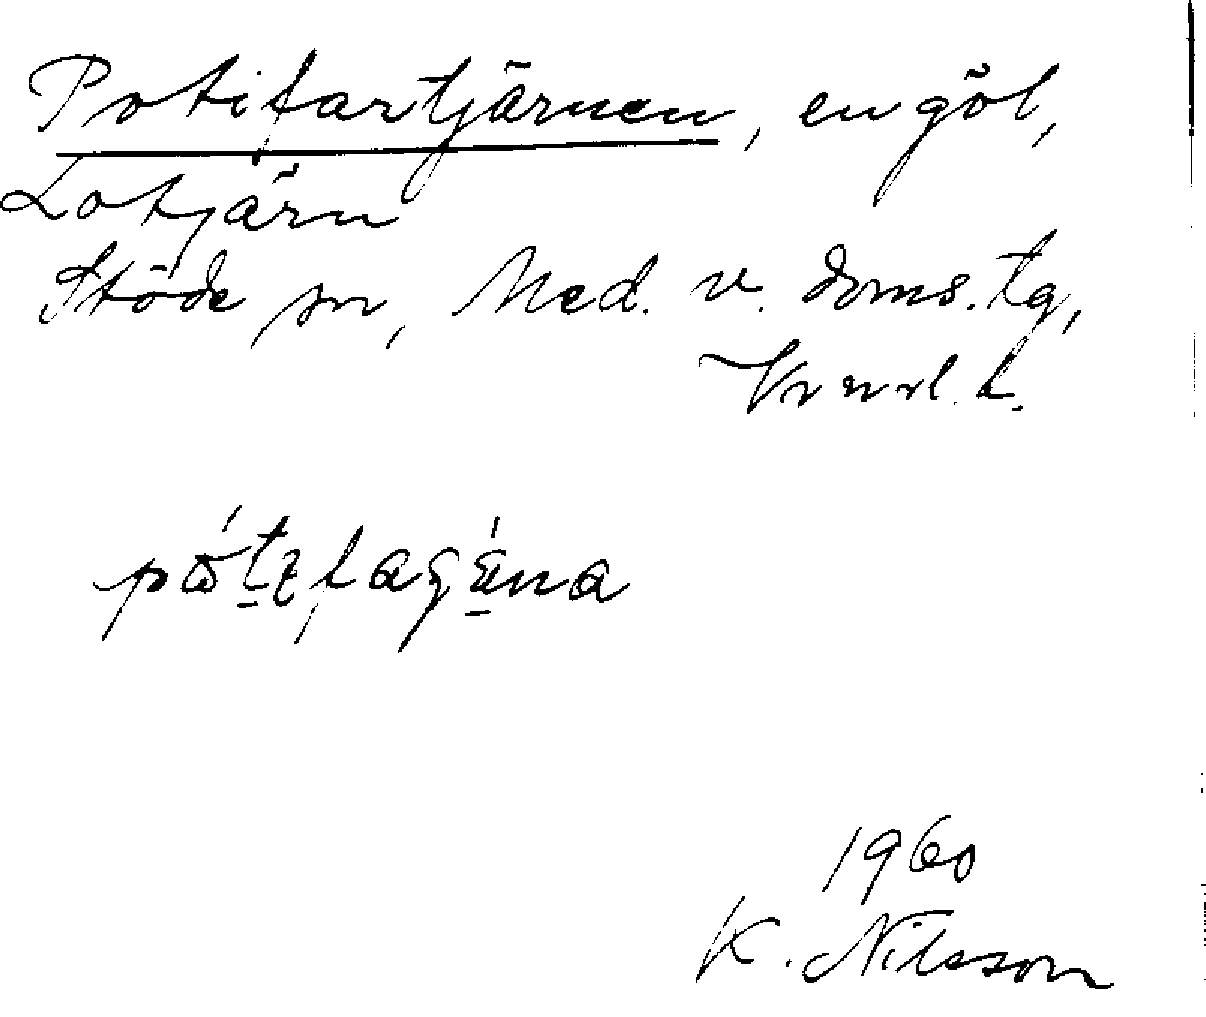 Potifartjärnen, en göl,
Lotjärn
Stöde sn, Med. v. doms. tg,
Vnrl. l.
1960
K. Nilsson